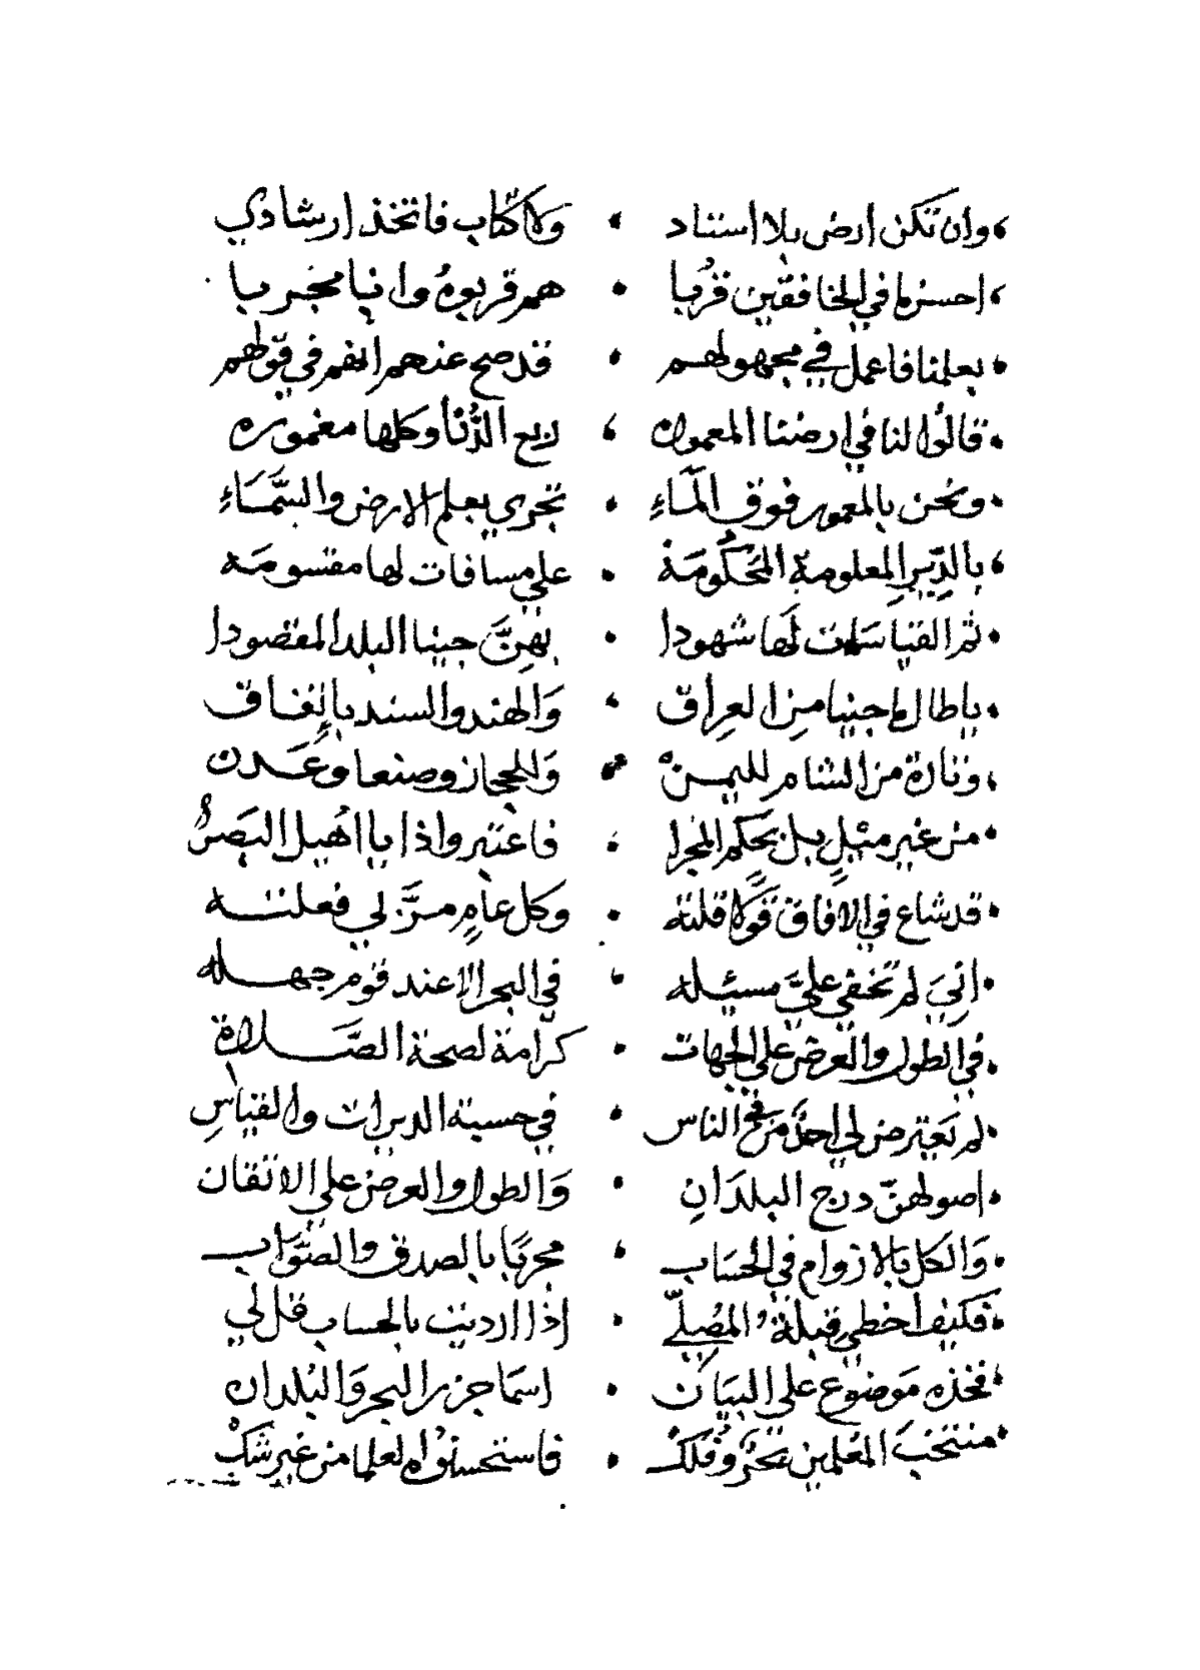 وان تكن ارض بلا استناد ولا كتاب فاتخذ ارشادي
احسنها في الخافقين قربا هم قربوه وانا مخبر با
بعلمنا فاعمل في مجهولهم قد صح عندهم انهم في قولهم
قالوا لنا في ارضنا المعموره لربع الدُّنْا وكلها مغموره
ونحن بالمعمور فوق المآءِ تجري بعلم الارض والسَّمَاءِ
بالدِّيَرِ المعلومة المَحكُومَة علي مسافات لها مقسومَه
ثم القياسات لَها شهودا بهِنَّ جينا البلد المقصودا
ياطال ما جينا مِن العِراق وَالهند والسند باِتِفاق
وتارة من الشام لليمنْ وَللحجاز وصنعا وعَدن
من غير ميْلٍ بل بحَكم المجرا فاعتبروا ذا يا اهُيل البَصرُ
قد شاع في الافاق قَولا قلته وكل عامٍ مرَّ لي فعلته
انِيَ لم تخفي عليَّ مسئله في البحر الا عند قوم جهله
في الطول والعرض علي الجهات كرامة لصحة الصَّلاة
لم يَعترض لي احدٌ من في الناس في حسبة الديرات والقياسِ
اصولهنّ درج البلدَانِ وَالطول والعرض علي الاتقان
وَالكل بالازوام في الحسَاب مجربًا بالصدق والصَّوَاب
فَكيف اخطي قبلة المُصِلّي اذا اردت بالحساب قل لي
فخذه مَوضوع علي البيَان اسمَا جزر البحر وَالبُلدان
منتخَبَ المُعلمين بَحْرٍ وفُلكْ فاستحسنوْاه لعلما من غير شَكْ